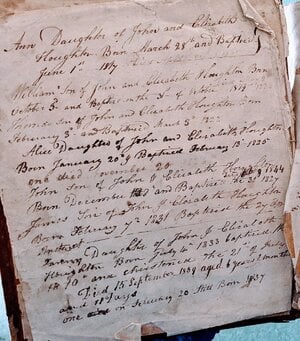 Ann Daughter of John and Elizabeth
Houghton Born March 28th and Baptised
June 1st 1817
William Son of John and Elizabeth Houghton Born
October 3 and Baptised on the of October 1819
Son of John and Elizabeth Houghton Born
February 3 and Baptised March 3 1822
Alice Daughter of John and Elizabeth Houghton
Born January 20 & Baptised February 13 1825
one died November 20
John Son of John & Elizabeth
Born December and Baptised the 1827 1844
James Son of John & Elizabeth Houghton
Born February 7th 1831 Baptised the 27 Day
Instant
Daughter of John & Elizabeth
Houghton Born July 4th 1833 baptised the
10th and christened the 21st of July
Died 15 September 1839 aged 6 years 2 months
and 11 Days
one on February 20 Still Born 1837